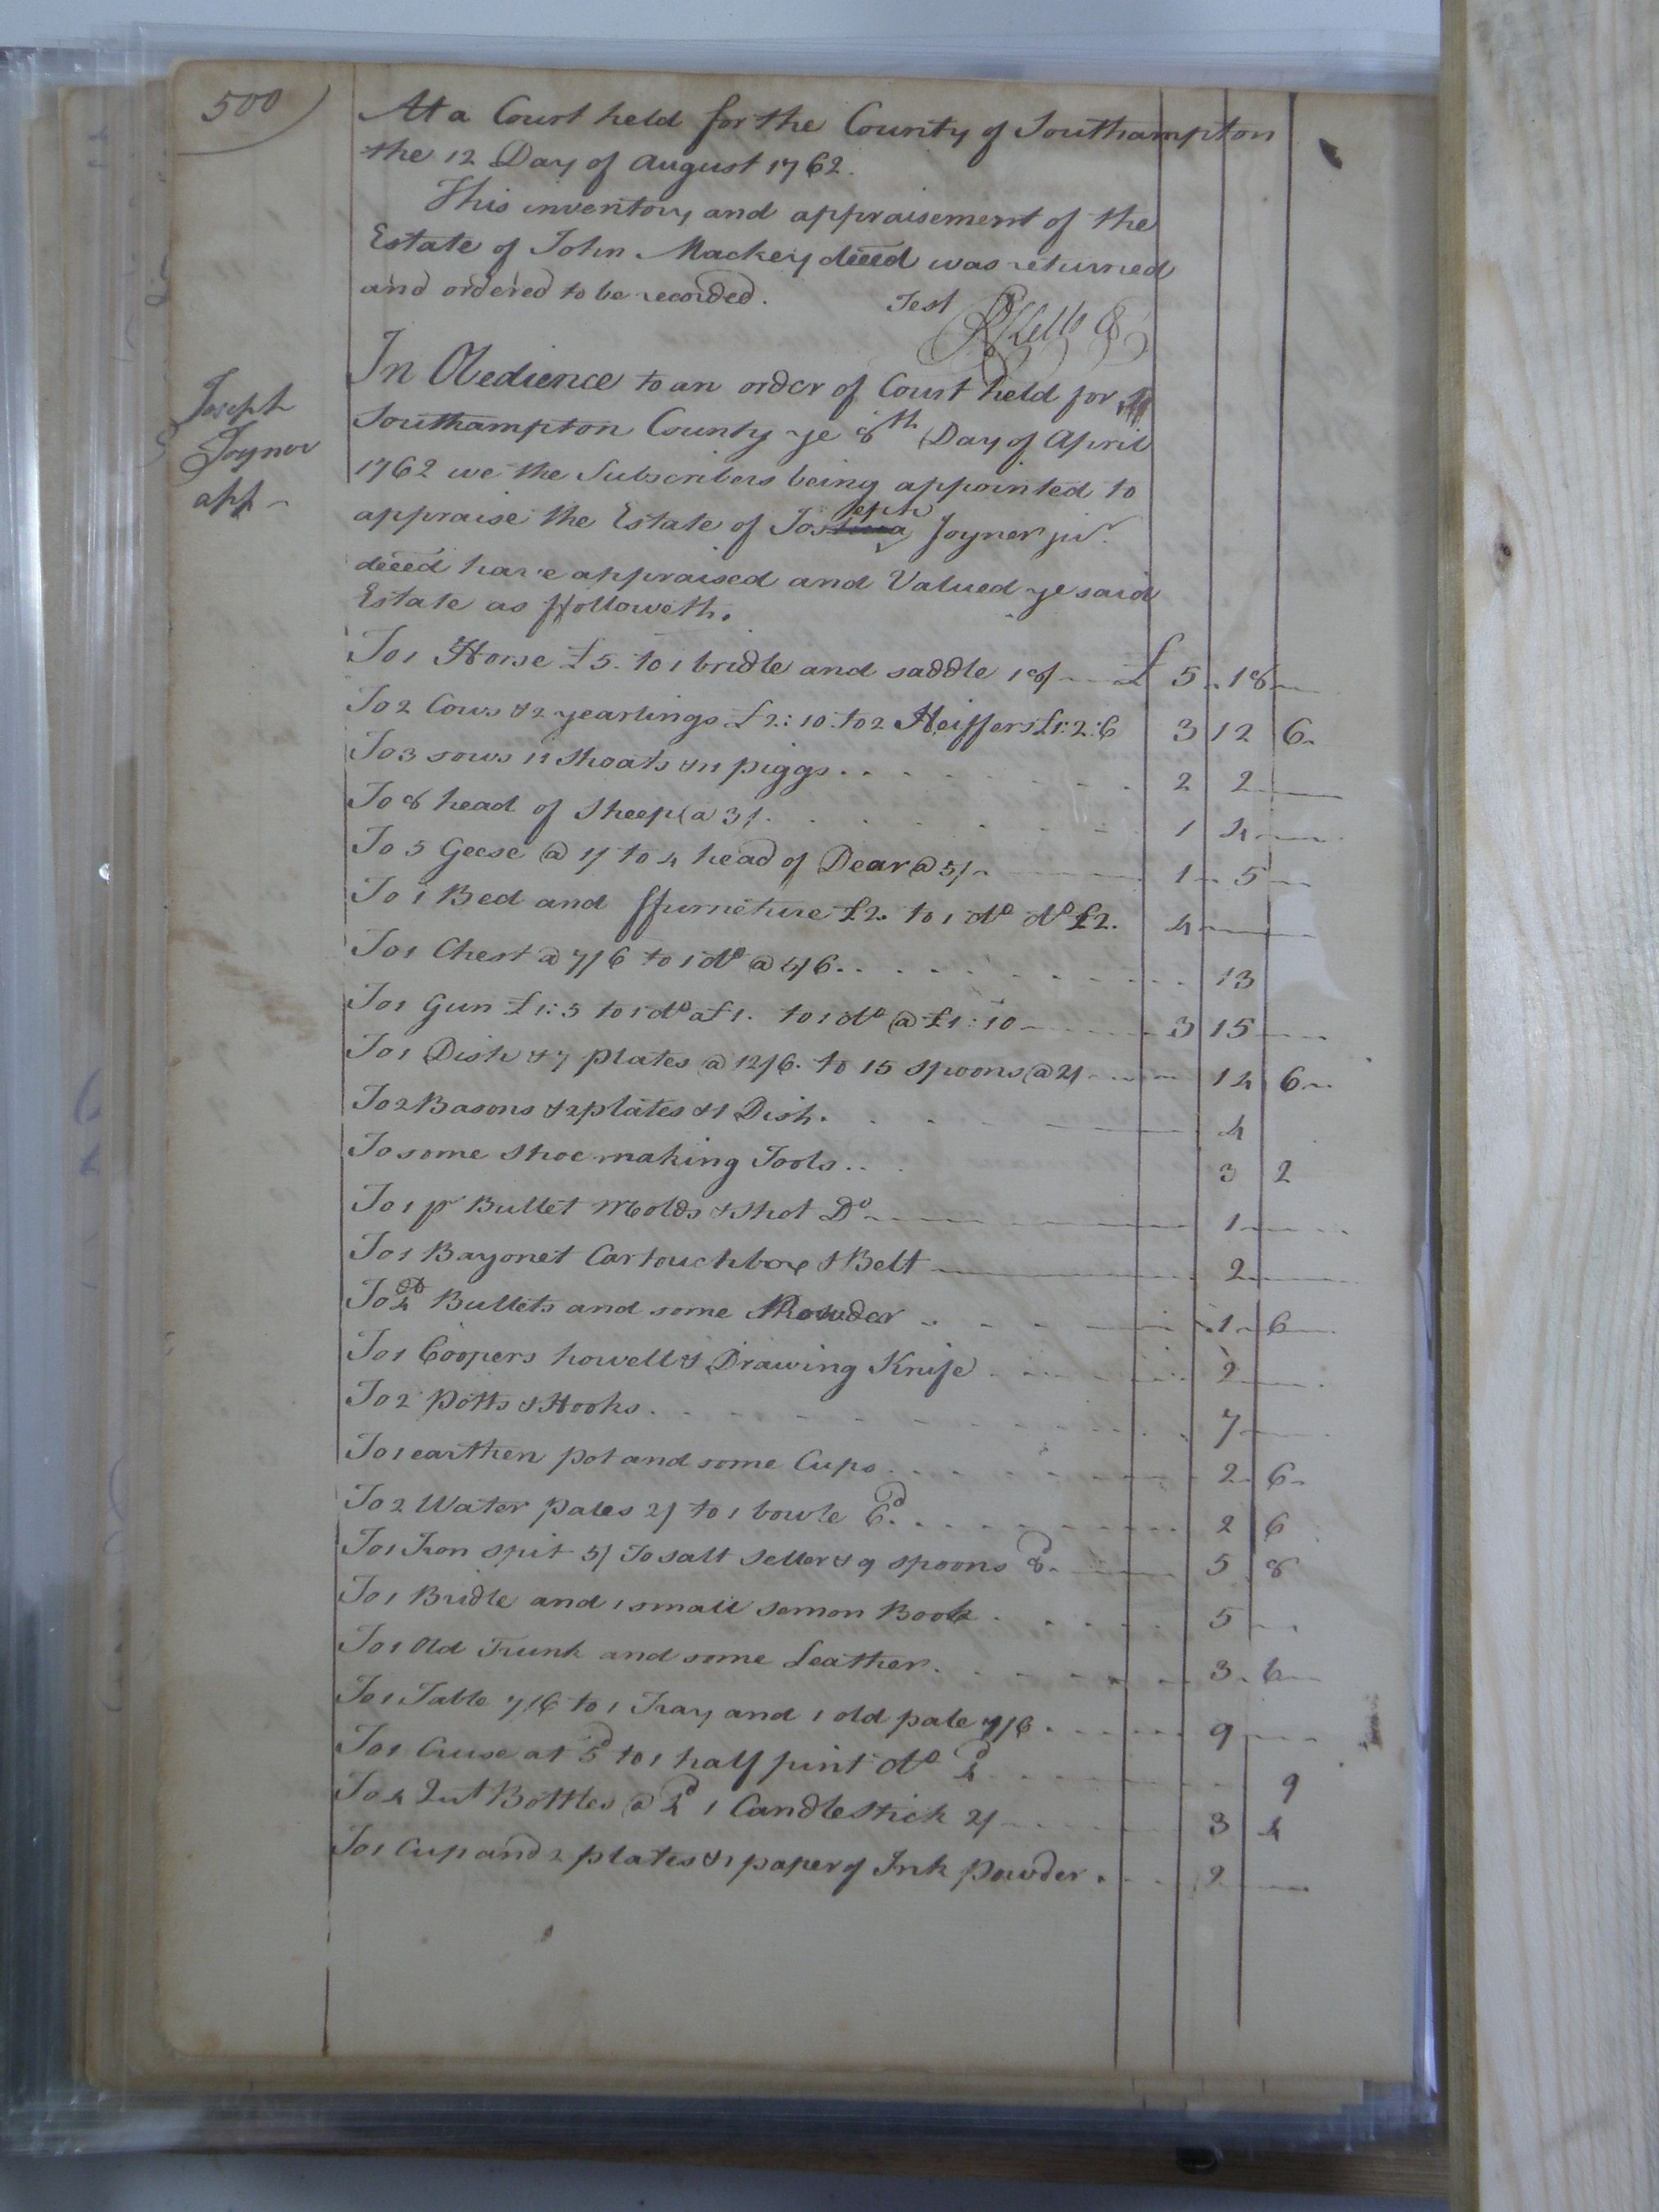 500
At a Court held for the County of Southampton
the 12 Day of August 1762.
This inventory and appraisement of the
Estate of John Mackey deced was returned
and ordered to be recorded. Test
Joseph
Joyner
app -
In Obedience to an order of Court held for
Southampton County ye 8th Day of April
1762 we the Subscribers being appointed to
appraise the Estate of Joshua eph Joyner jur.
deced have appraised and Valued ye said
Estate as ffolloweth.
To 1 Horse £5. to 1 bridle and saddle 18/ £ 5 18
To 2 Cows & 2 yearlings £2:10. to 2 Heiffers £1:2:6 3 12 6
To 3 sows 11 Shoats & 11 piggs 2 2
To 8 head of Sheep @ 3/. 1 4
To 5 Geese @ 1/ to 4 head of Dear @ 5/ 1 5
To 1 Bed and ffurneture £2. to 1 do do £2. 4
To 1 Chest @ 7/6 to 1 do @ 5/6 13
To 1 Gun £1:5 to 1 do at £1. to 1 do @ £1:10 3 15
To 1 Dish & 7 plates @ 12/6. to 15 spoons @ 2/ 14 6
To 2 Basons & 2 plates & 1 Dish. 4
To some Shoe making Tools 3 2
To 1 pr Bullet Molds & Shot Do 1
To 1 Bayonet Cartouchbox & Belt 2
To 4d Bullets and some Powder 1 6
To 1 Coopers howell & Drawing Knife 2
To 2 Potts & Hooks 7
To 1 earthen pot and some Cups 2 6
To 2 Water pales 2/ to 1 bowle 6d 2 6
To 1 Iron spit 5/ To salt seller & 9 spoons 8d 5 8
To 1 Bridle and 1 small Semon Book 5
To 1 Old Trunk and some Leather. 3 6
To 1 Table 7/6 to 1 Tray and 1 old pale 1/6 9
To 1 Cruse at 5d to 1 half pint do 4d 9
To 4 Qut Bottles @ 4d 1 Candlestick 2/ 3 4
To 1 Cup and 2 plates & 1 paper of Ink powder. 2